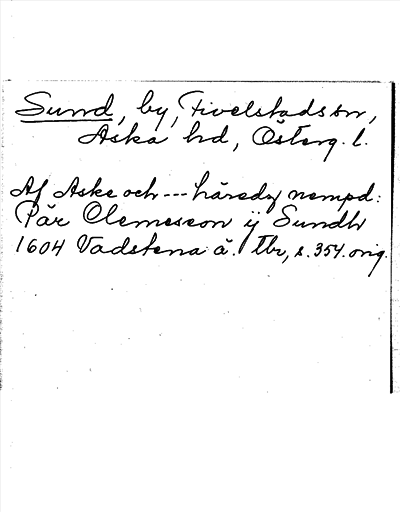 Sund, by, Fivelstads sn,
Aska hd, Österg. l.
Af Aske och --- häredz nempd:
Pär Clemesson ij Sundh
1604 Vadstena ä. tbr, s. 354. orig.